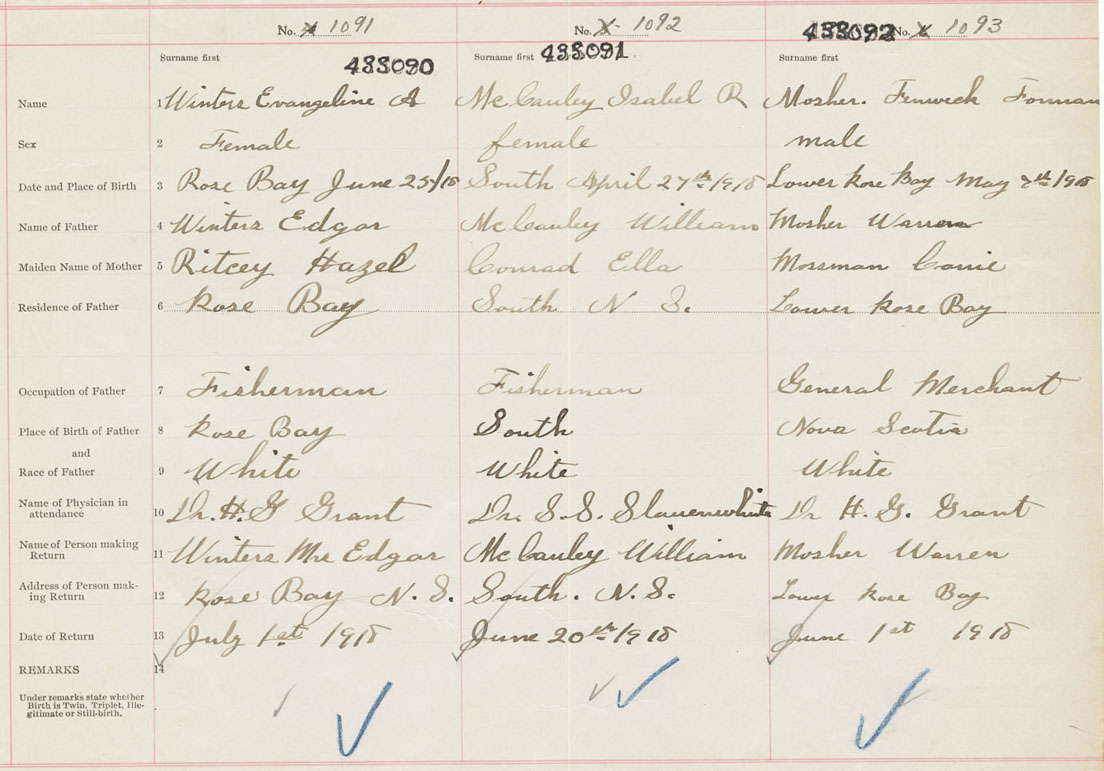 No. X 1091 No. X 1092 No. X 1093
Surname first 433090 Surname first 433091 Surname first 433092
Name 1 Winters Evangeline A McCauley Isabel R Mosher. Fenwick Forman
Sex 2 Female female male
Date and Place of Birth 3 Rose Bay June 25/18 South April 27th/1918 Lower Rose Bay May 7th/1918
Name of Father 4 Winters Edgar McCauley William Mosher Warren
Maiden Name of Mother 5 Ritcey Hazel Conrad Ella Mossman Carrie
Residence of Father 6 Rose Bay South N S. Lower Rose Bay
Occupation of Father 7 Fisherman Fisherman General Merchant
Place of Birth of Father 8 Rose Bay South Nova Scotia
and
Race of Father 9 White White White
Name of Physician in attendance 10 Dr. H. G Grant Dr. S. S. Slauenwhite Dr H. G. Grant
Name of Person making Return 11 Winters Mrs Edgar McCauley William Mosher Warren
Address of Person making Return 12 Rose Bay N. S. South. N. S. Lower Rose Bay
Date of Return 13 July 1st 1918 June 20th/1918 June 1st 1918
REMARKS 14
Under remarks state whether
Birth is Twin, Triplet, Ille-
gitimate or Still-birth.